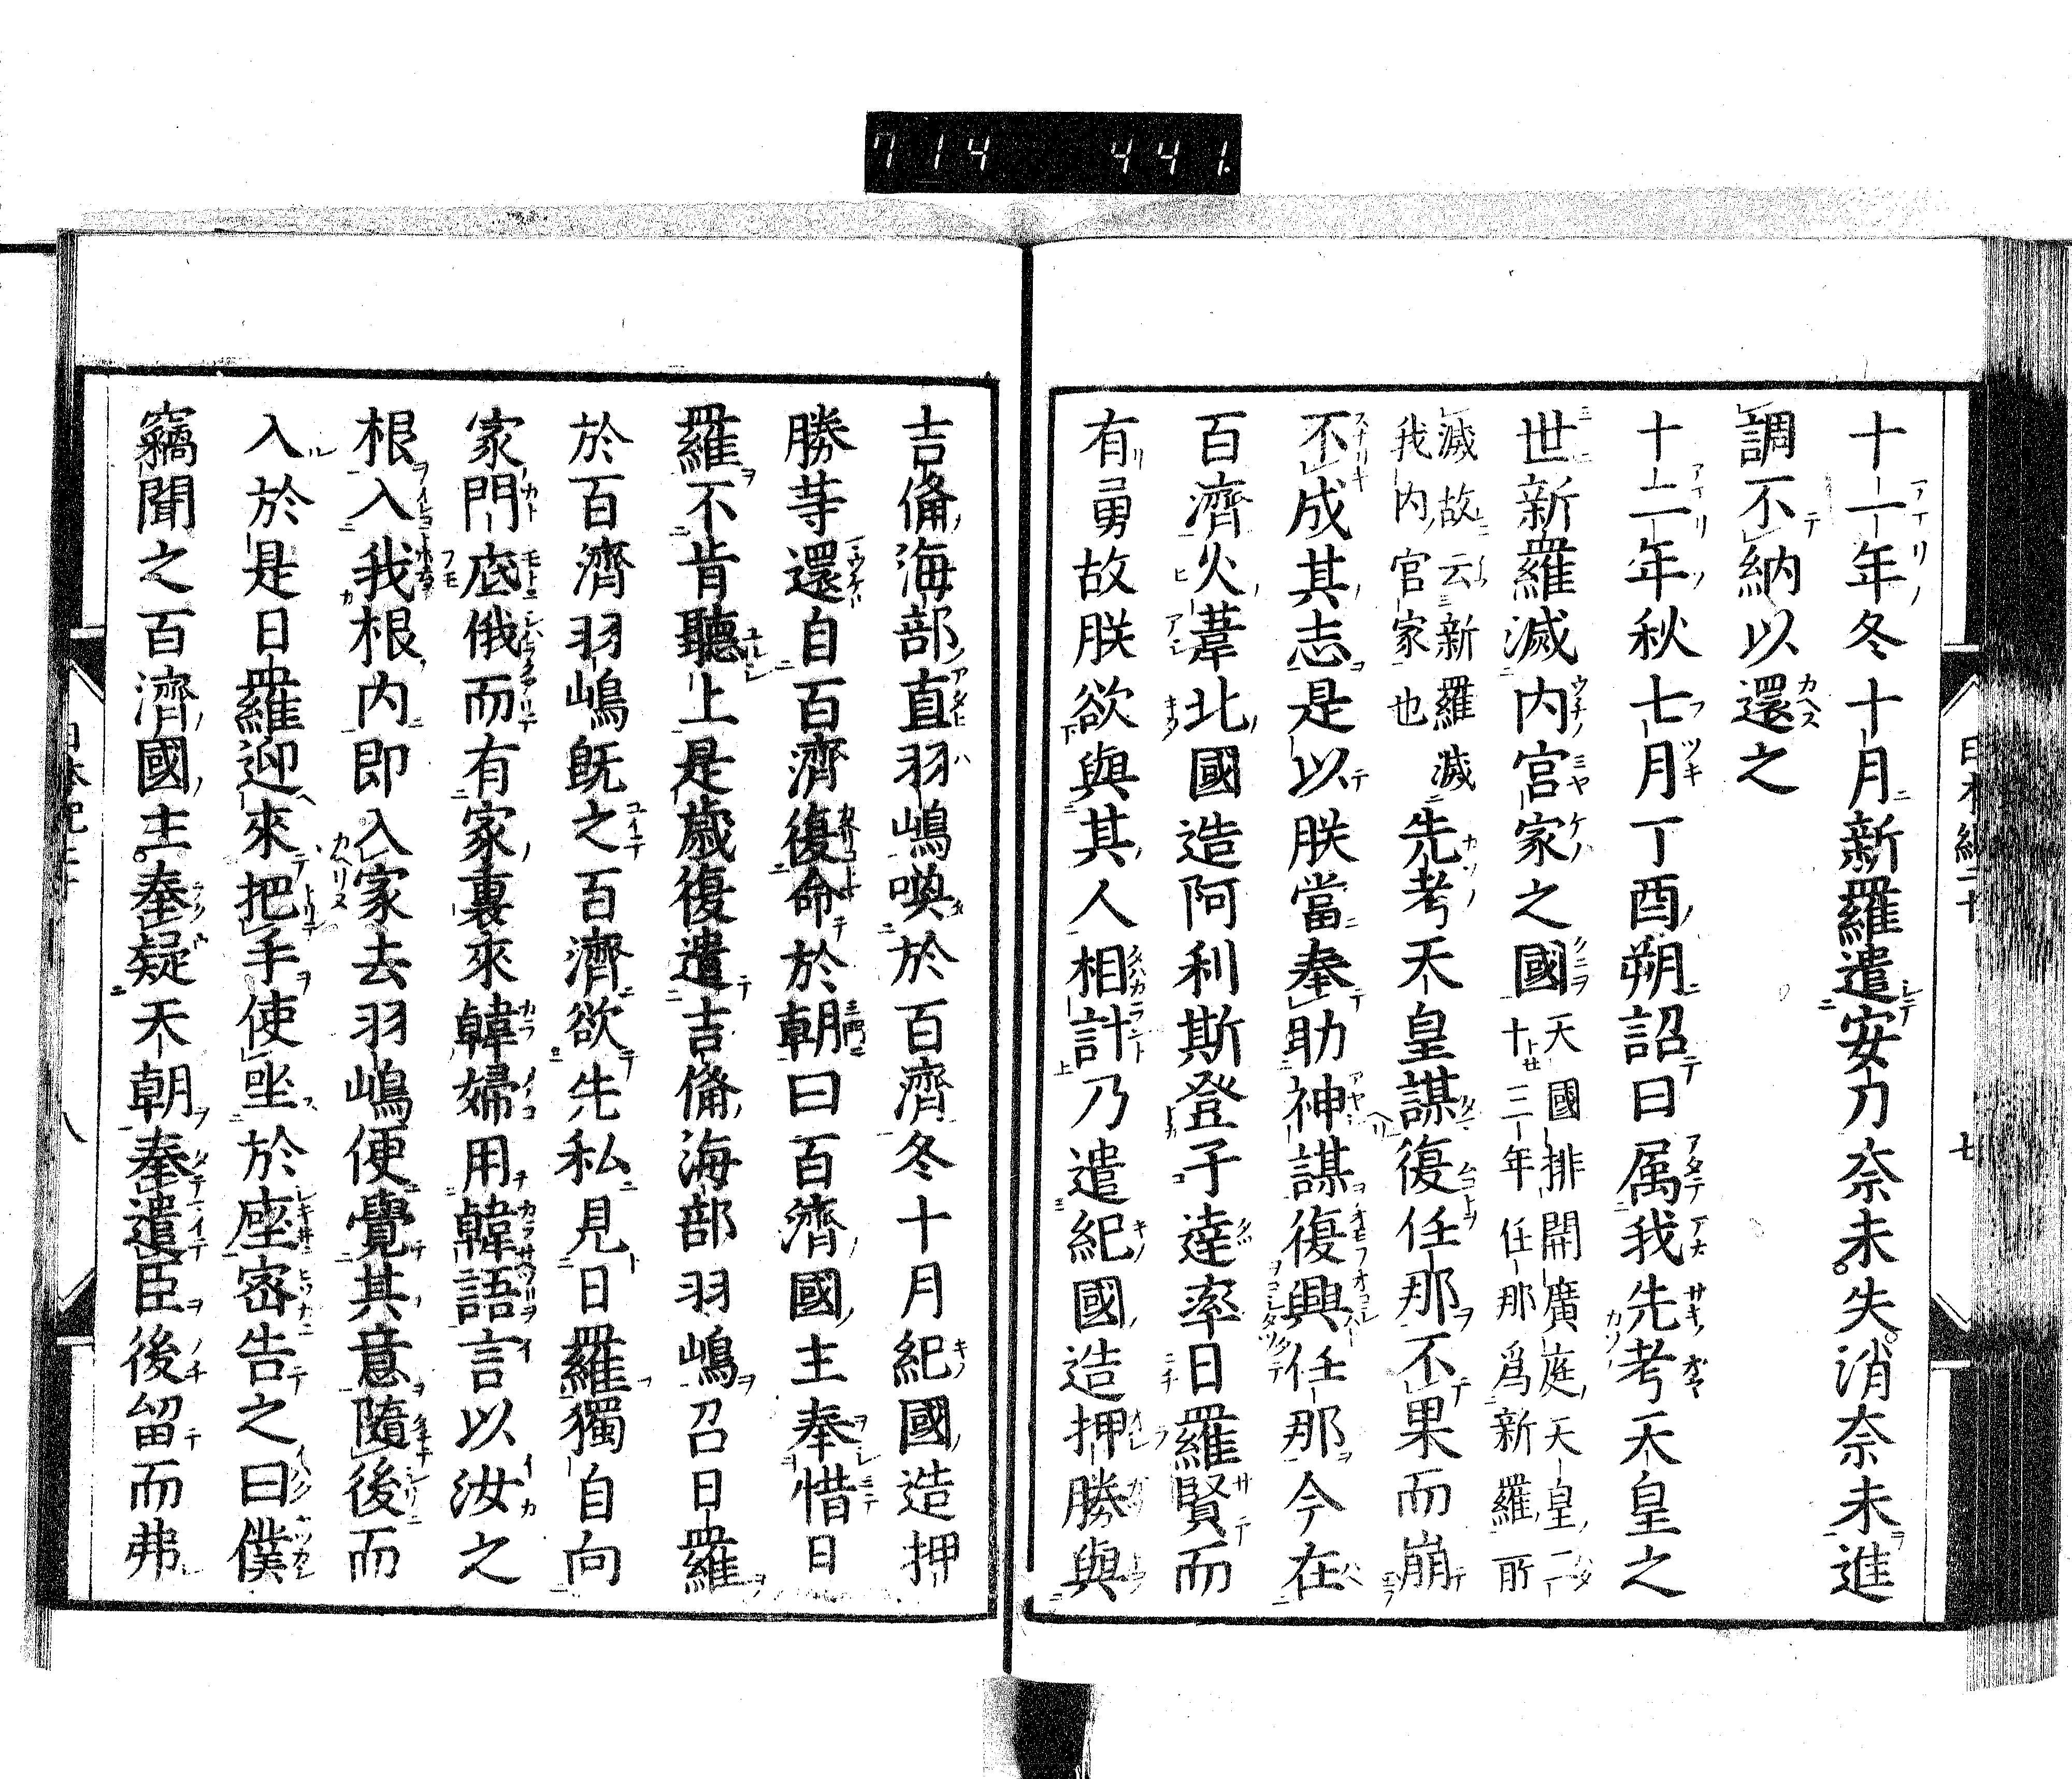 714 441.
日本紀二十
七
十一年冬十月新羅遣安刀奈未失消奈未進
調不納以還之
十二年秋七月丁酉朔詔曰属我先考天皇之
世新羅滅内官家之國天國排開廣庭天皇二
十三年任那爲新羅所
滅故云新羅滅
我内官家也先考天皇謀復任那不果而崩
不成其志是以朕當奉助神謀復興任那今在
百濟火葦北國造阿利斯登子達率日羅賢而
有勇故朕欲與其人相計乃遣紀國造押勝與
吉備海部直羽嶋喚於百濟冬十月紀國造押
勝等還自百濟復命於朝曰百濟國主奉惜日
羅不肯聽上是歳復遣吉備海部羽嶋召日羅
於百濟羽嶋既之百濟欲先私見日羅獨自向
家門底俄而有家裏來韓婦用韓語言以汝之
根入我根内即入家去羽嶋便覺其意隨後而
入於是日羅迎來把手使坐於座密告之曰僕
竊聞之百濟國主奉疑天朝奉遣臣後留而弗
八